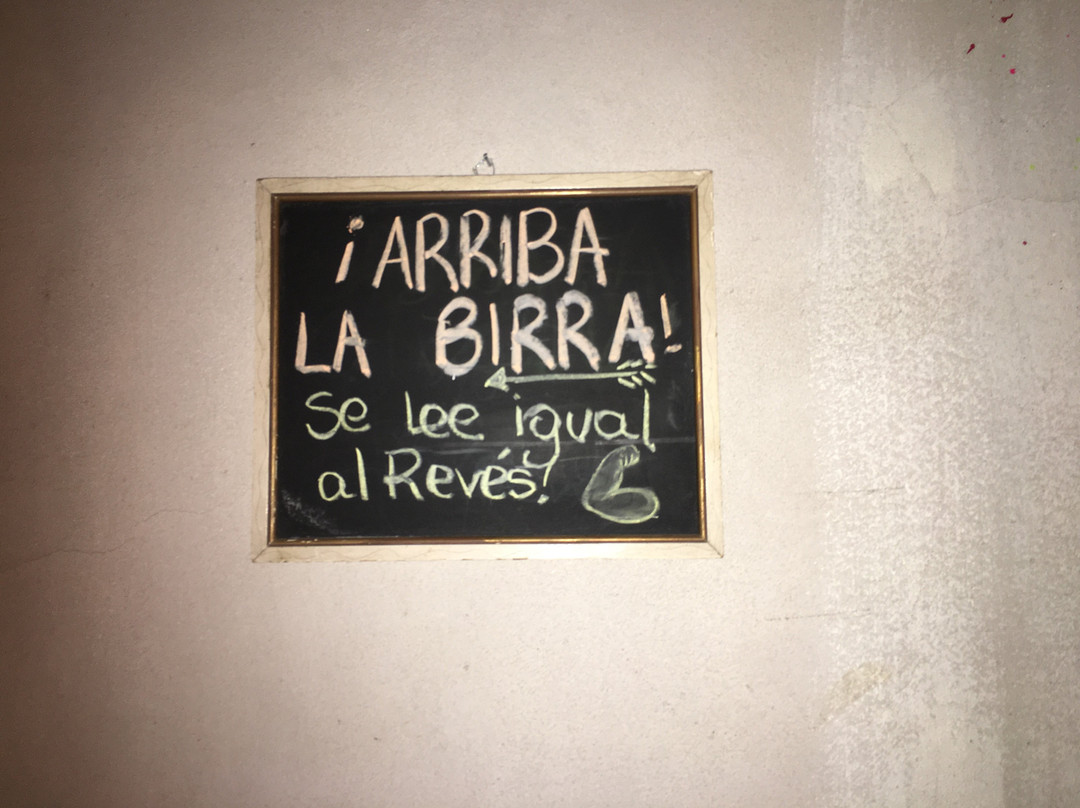 ¡ARRIBA
LA BIRRA!
Se Lee igual
al Revés!